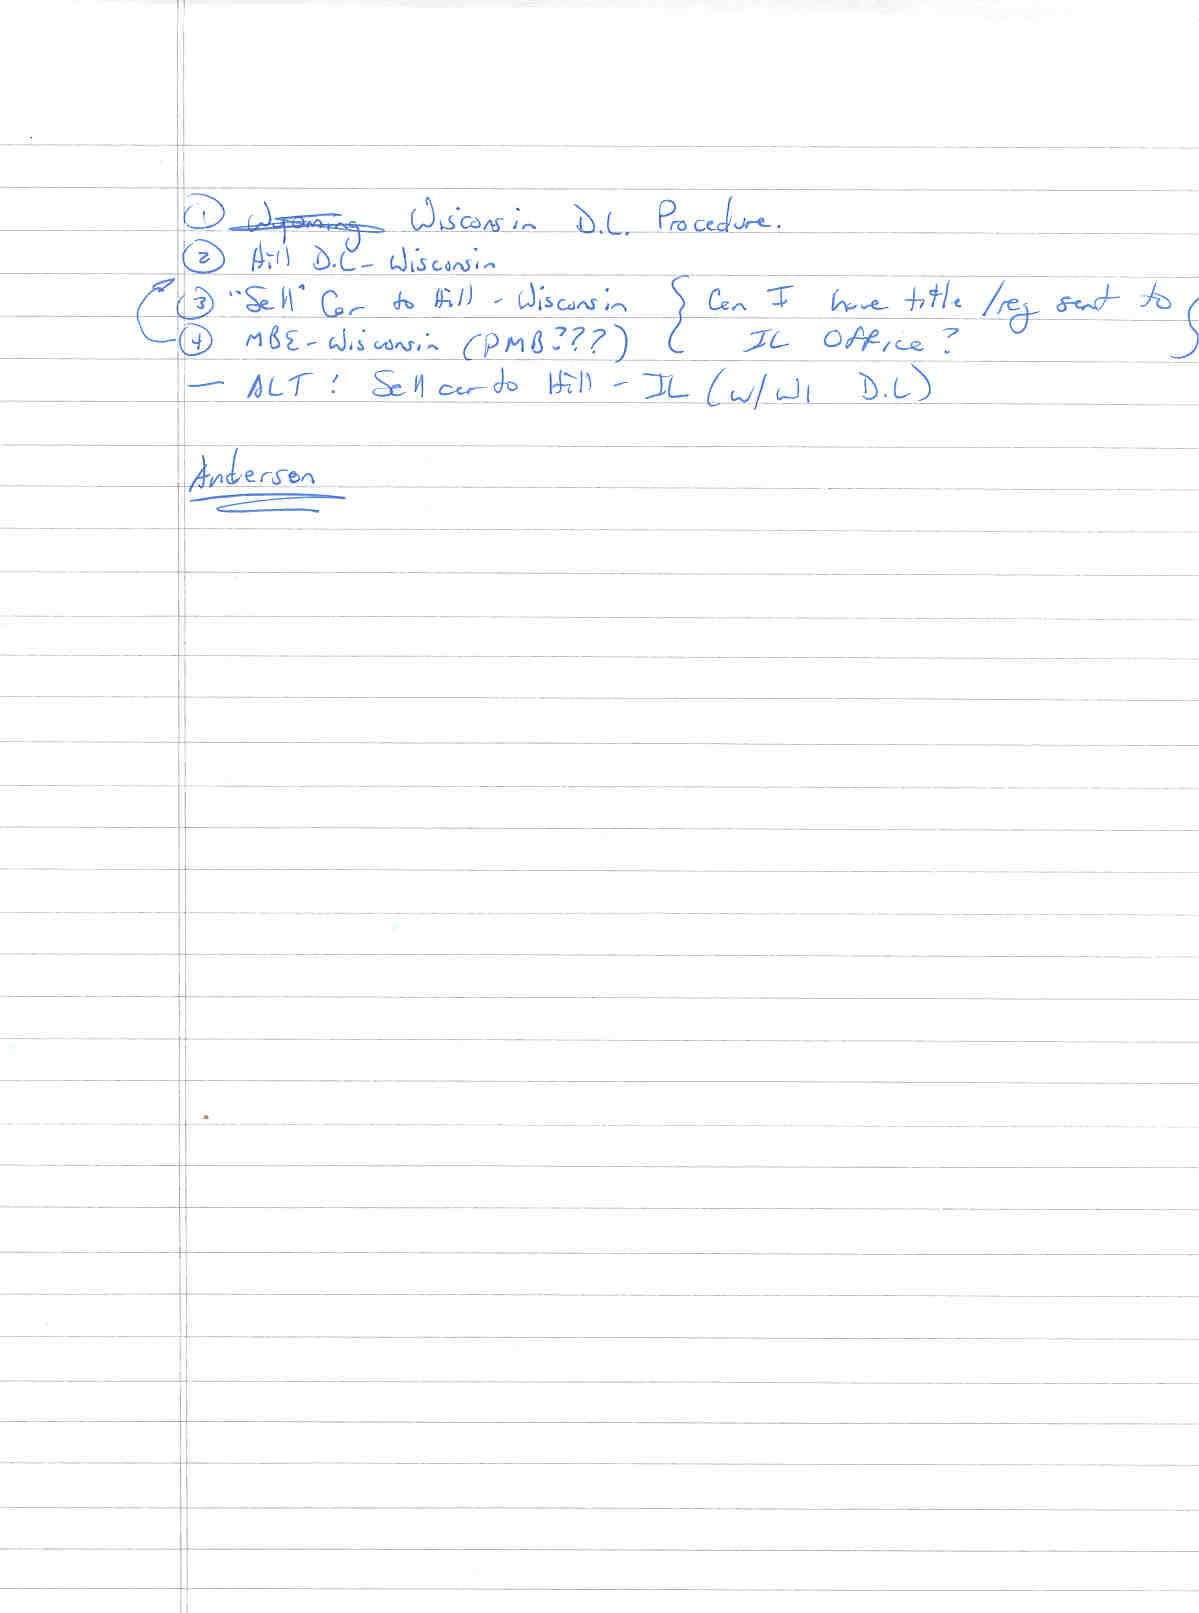 ① Wyoming Wisconsin D.L. Procedure.
② Hill D.L - Wisconsin
③ "Sell" Car to Hill - Wisconsin { Can I have title/reg sent to }
④ MBE - Wisconsin (PMB???) { IL Office? }
— ALT: Sell car to Hill - IL (w/WI D.L)
Anderson